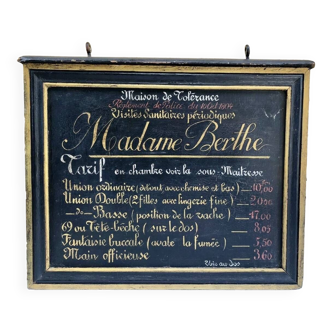 Maison de Tolérance
Reglement de Police du
Visites Sanitaires périodiques
Madame Berthe
Tarif en chambre voir la sous-Maitresse
Union ordinaire (debout avec chemise et bas) 10,00
Union Double (2 filles avec lingerie fine)
—do— Basse (position de la vache)
69 ou Tête-bêche (sur le dos) 8,05
Fantaisie buccale (avale la fumée) 5,50
Main officieuse 3,60